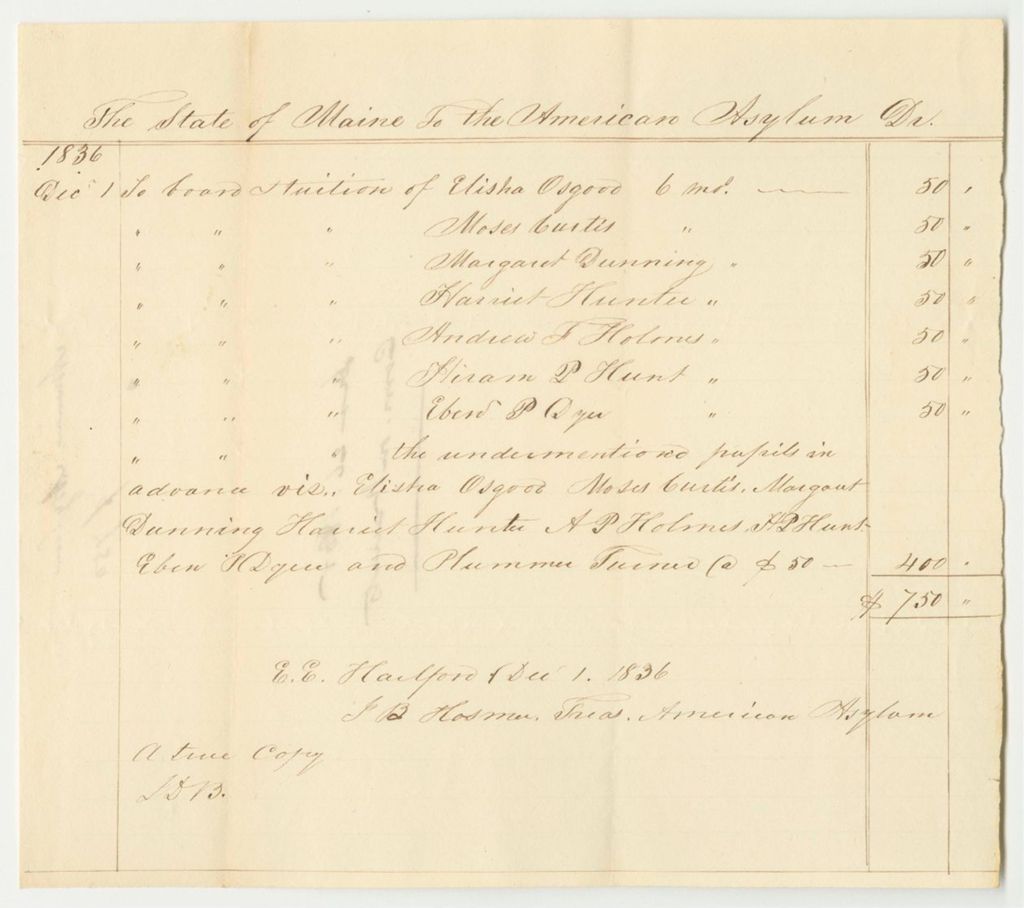 The State of Maine To the American Asylum Dr.
1836
Dec 1 To board & tuition of Elisha Osgood 6 mo. 50 "
" " " Moses Curtis " 50 "
" " " Margaret Dunning " 50 "
" " " Harriet Hunter " 50 "
" " " Andrew F Holmes " 50 "
" " " Hiram P Hunt " 50 "
" " " Ebenr P Dyer " 50 "
" " " the undermentioned pupils in
advance viz., Elisha Osgood Moses Curtis, Margaret
Dunning Harriet Hunter A P Holmes, H P Hunt
Eben Dyer and Plummer Turner @ $50 — 400 "
$ 750 "
E.E. Hartford Dec 1. 1836
J B Hosmer, Treas. American Asylum
A true Copy